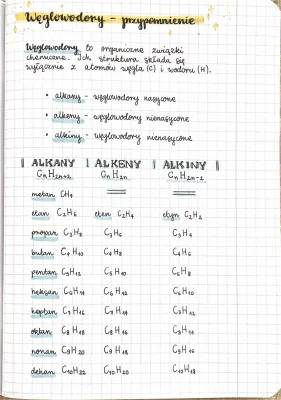 Węglowodory - przypomnienie
Węglowodory to organiczne związki
chemiczne. Ich struktura składa się
wyłącznie z atomów węgla (C) i wodoru (H).
• alkany - węglowodory nasycone
• alkeny - węglowodory nienasycone
• alkiny - węglowodory nienasycone
| ALKANY | ALKENY | ALKINY |
CnH2n+2 CnH2n CnH2n-2
metan CH4
etan C2H6 eten C2H4 etyn C2H2
propan C3H8 C3H6 C3H4
butan C4H10 C4H8 C4H6
pentan C5H12 C5H10 C5H8
heksan C6H14 C6H12 C6H10
heptan C7H16 C7H14 C7H12
oktan C8H18 C8H16 C8H14
nonan C9H20 C9H18 C9H16
dekan C10H22 C10H20 C10H18